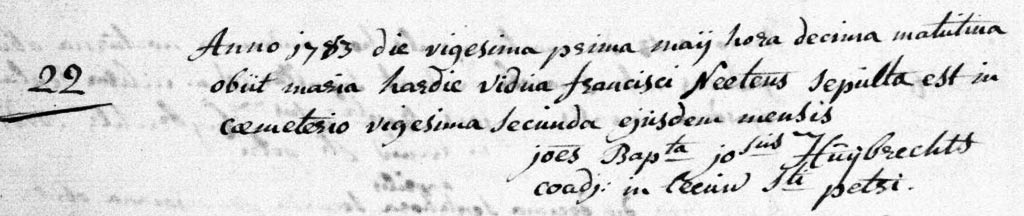 Anno 1783 die vigesima prima maij hora decima matutina
22
obiit maria hardie vidua francisci Neetens sepulta est in
cœmeterio vigesima secunda ejusdem mensis
joēs Bapta josus Huÿbrechts
coadj: in leeuw Sti petri.